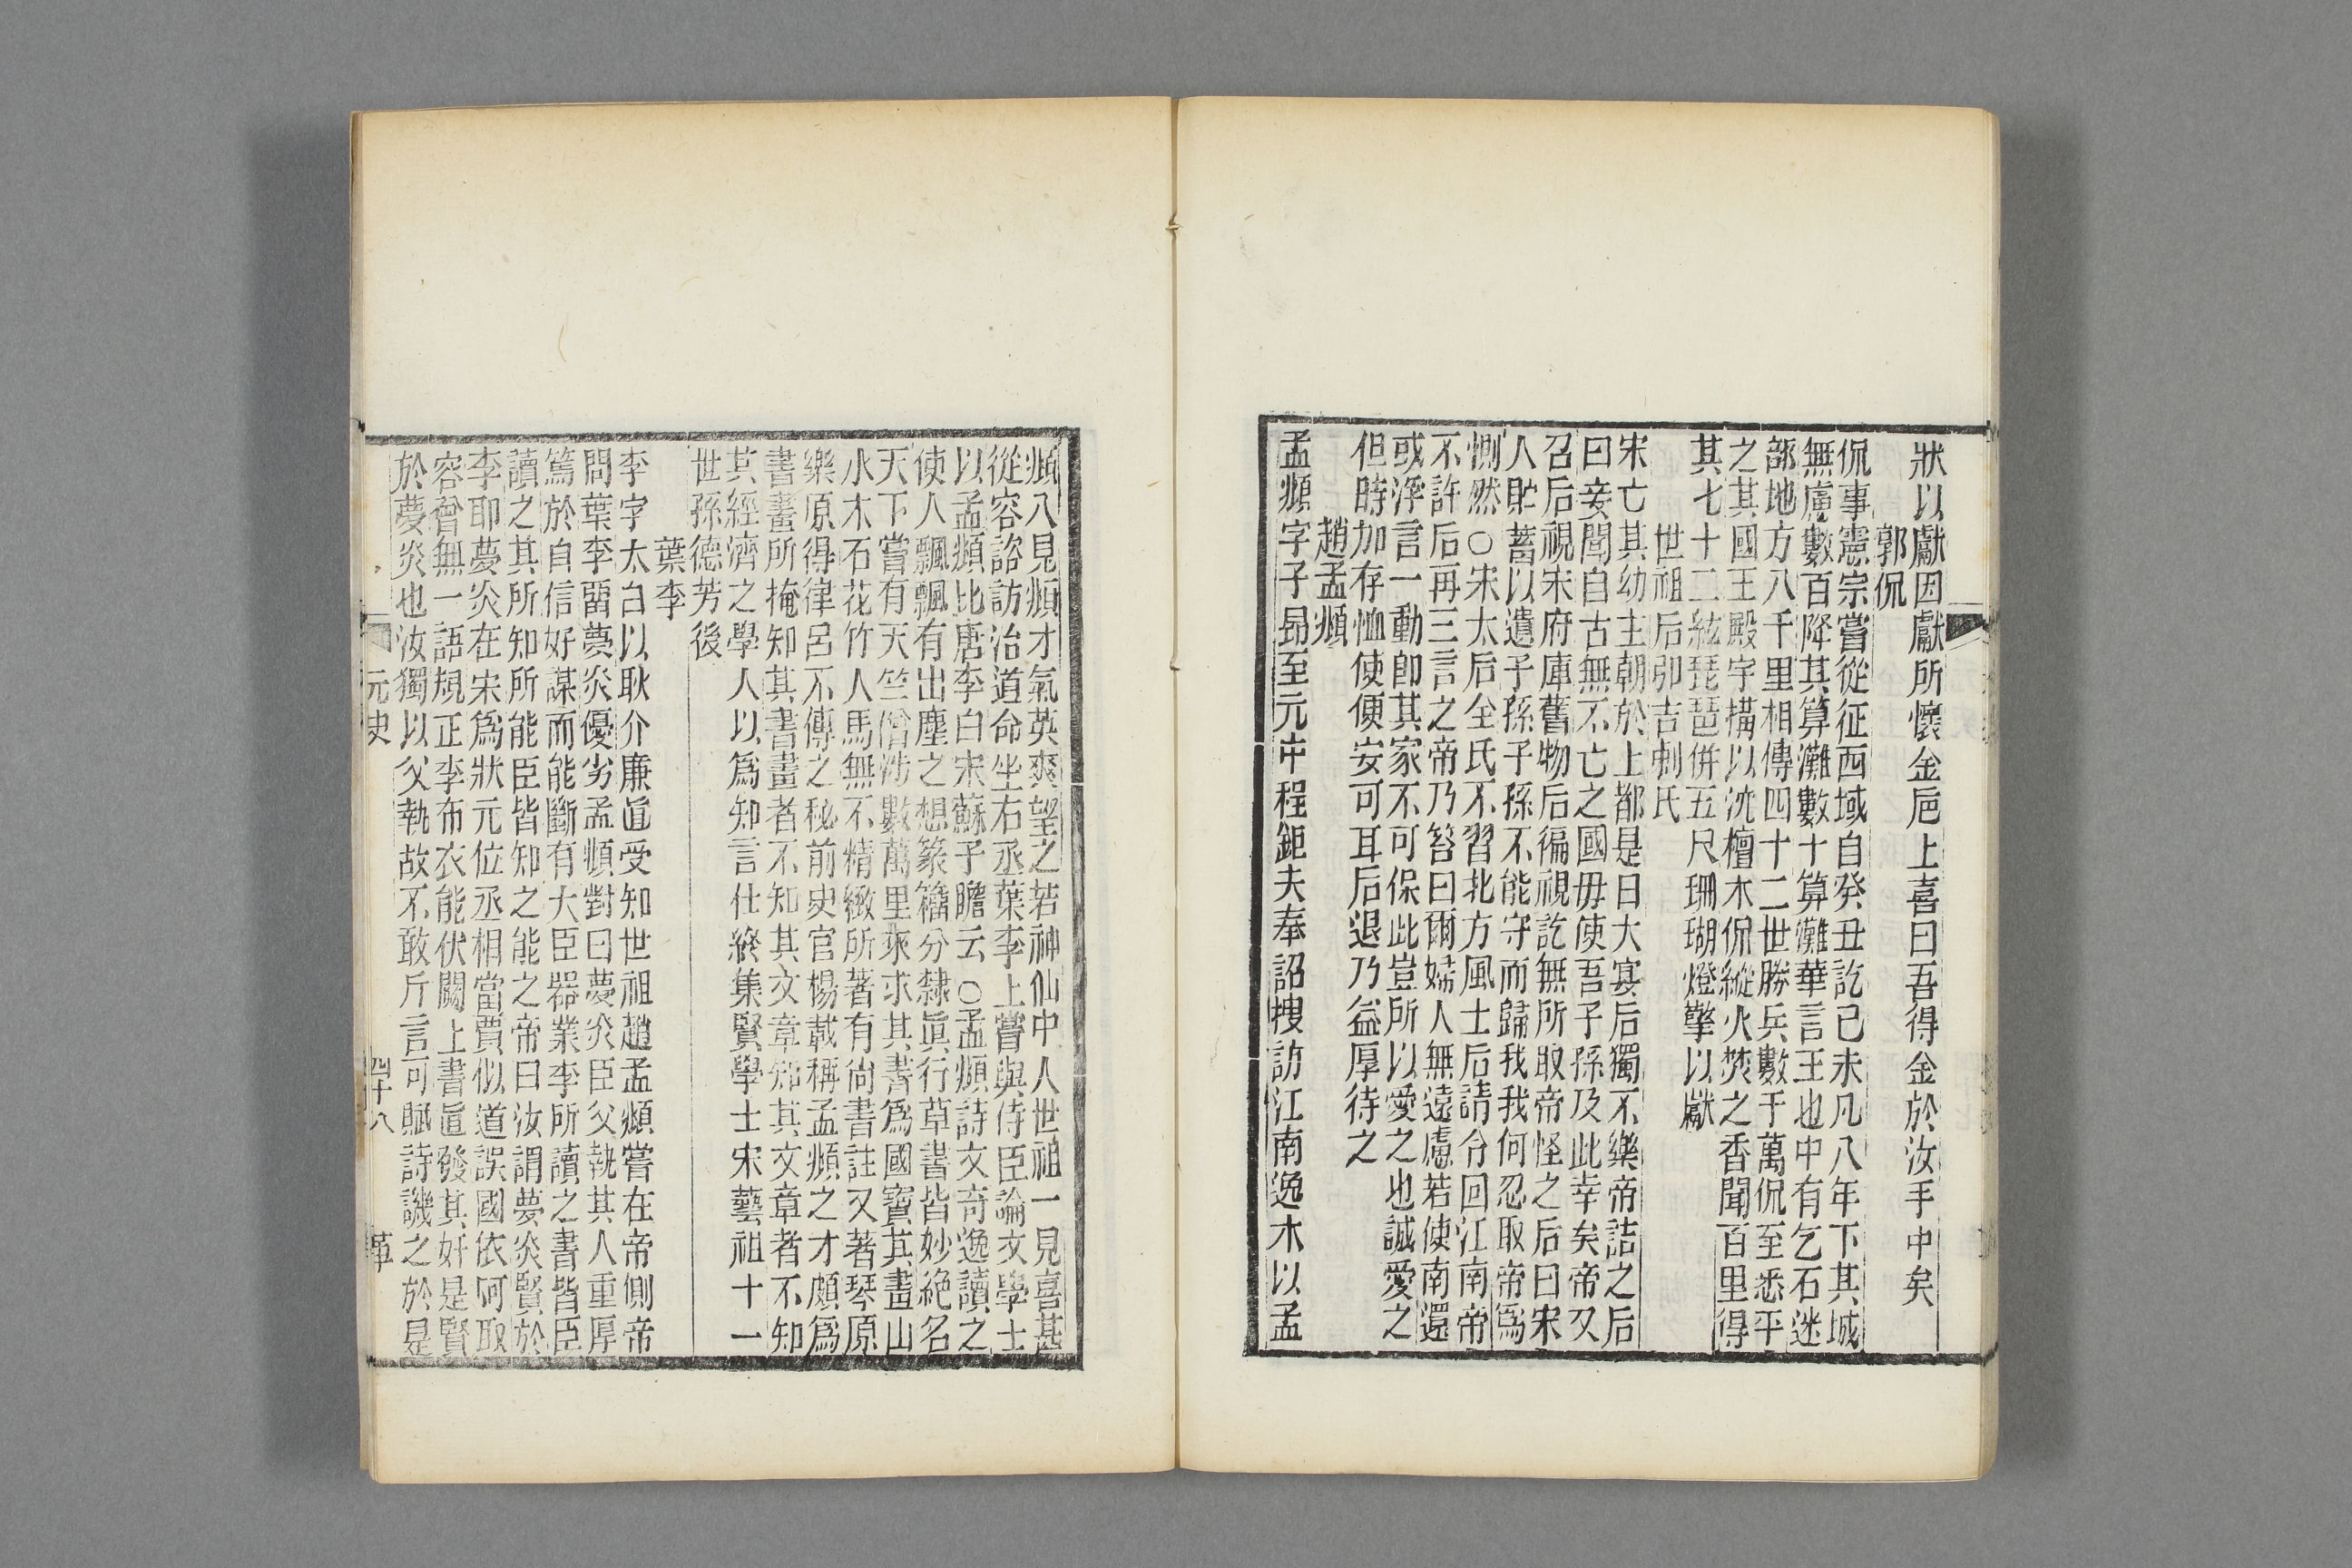 狀以獻因獻所懷金巵上喜曰吾得金於汝手中矣
郭侃
侃事憲宗嘗從征西域自癸丑訖己未凡八年下其城
無慮數百降其算灘數十算灘華言王也中有乞石迷
部地方八千里相傳四十二世勝兵數于萬侃至悉平
之其國王殿宇搆以沈檀木侃縱火焚之香聞百里得
其七十二絃琵琶併五尺珊瑚燈檠以獻
世祖后弘吉剌氏
宋亡其幼主朝於上都是日大宴后獨不樂帝詰之后
曰妾聞自古無不亡之國毋使吾子孫及此幸矣帝又
召后視宋府庫舊物后徧視訖無所取帝怪之后曰宋
人貯蓄以遺子孫子孫不能守而歸我我何忍取帝爲
惻然○宋太后全氏不習北方風士后請令回江南帝
不許后再三言之帝乃答曰爾婦人無遠慮若使南還
或浮言一動卽其家不可保此豈所以愛之也誠愛之
但時加存恤使便安可耳后退乃益厚待之
趙孟頫
孟頫字子昻至元中程鉅夫奉詔搜訪江南逸木以孟
頫八見頫才氣英爽望之若神仙中人世祖一見喜甚
從容諮訪治道命坐右丞葉李上嘗與侍臣論文學士
以孟頫比唐李白宋蘇子瞻云○孟頫詩文奇逸讀之
使人飄飄有出塵之想篆籒分隸眞行草書皆妙絶名
天下嘗有天竺僧涉數萬里來求其書爲國寶其畫山
水木石花竹人馬無不精緻所著有尙書註又著琴原
樂原得律呂不傳之秘前史官楊載稱孟頫之才頗爲
書畫所掩知其書畫者不知其文章知其文章者不知
其經濟之學人以爲知言仕終集賢學士宋藝祖十一
世孫德芳後
葉李
李字太白以耿介廉直受知世祖趙孟頫嘗在帝側帝
問葉李畱夢炎優劣孟頫對曰夢炎臣父執其人重厚
篤於自信好謀而能斷有大臣器業李所讀之書皆臣
讀之其所知所能臣皆知之能之帝曰汝謂夢炎賢於
李耶夢炎在宋爲狀元位丞相當賈似道誤國依阿取
容曾無一語規正李布衣能伏闕上書直發其奸是賢
於夢炎也汝獨以父執故不敢斥言可賦詩譏之於是
元史
四十八
革